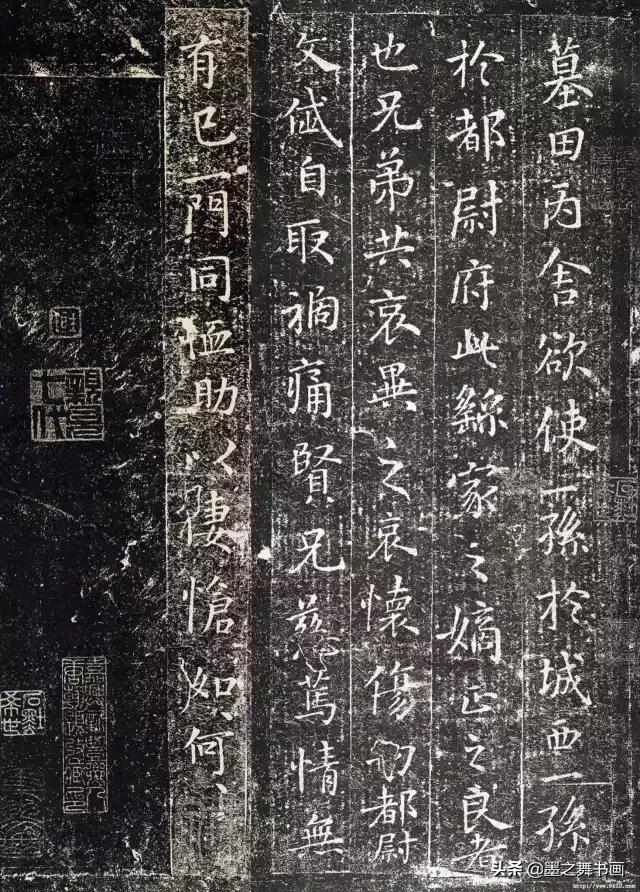 墓田丙舍欲使一孫於城西一孫
於都尉府此繇家之嫡正之良者
也兄弟共哀異之哀懷傷切都尉
文岱自取禍痛賢兄慈篤情無
有已一門同恤助以悽愴如、何、
头条@墨之舞书画
http://www.9610.com